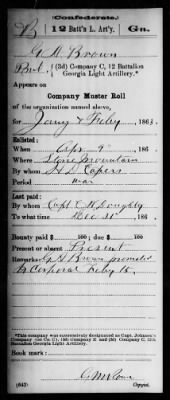 (Confederate.)
B 12 Batt'n L. Art'y. Ga.
G A Brown
Pvt., (3d) Company C, 12 Battalion
Georgia Light Artillery.*
Appears on
Company Muster Roll
of the organization named above,
for Jany & Feby, 1863.
Enlisted:
When 186 .
Where Stone Mountain
By whom H D Capers
Period war
Last paid:
By whom Capt. 
To what time Dec 31, 186 .
Bounty paid $ 100; due $ 100
Present or absent Present
Remarks: G A Brown promoted
to Corporal Feby 15.
*This company was successively designated as Capt. Johnson's
Company
Battalion Georgia Light Artillery.
Book mark:
(642) Copyist.